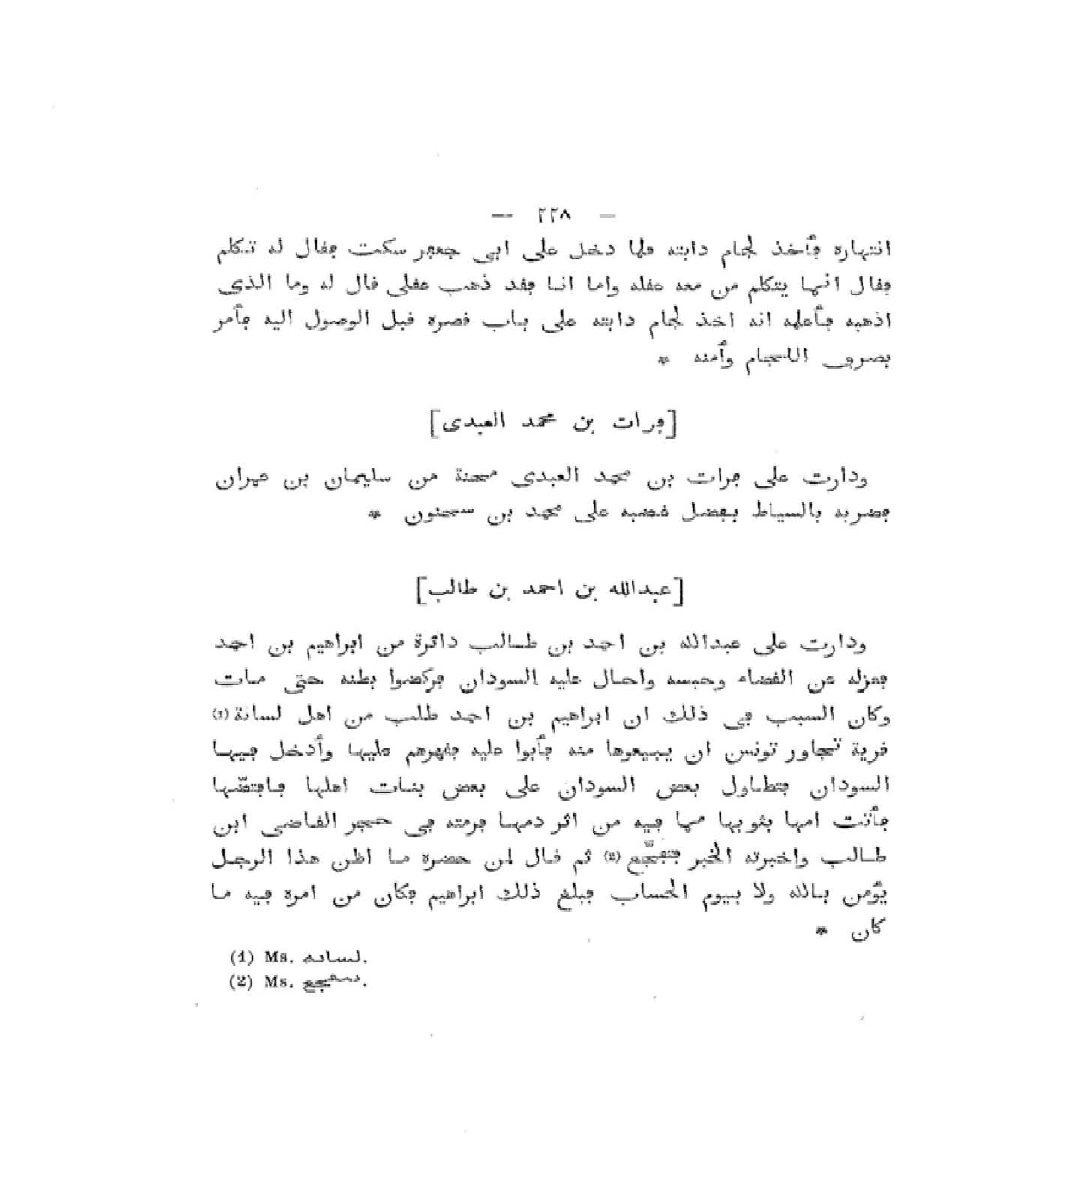 — ٢٢٨ —
انتهاره فأخذ لجام دابته فلما دخل على ابى جعفر سكت فقال له تكلم
فقال انما يتكلم من معه عقله واما انا فقد ذهب عقلى قال له وما الذى
اذهبه فأعلمه انه اخذ لجام دابته على باب قصره قبل الوصول اليه فأمر
بصرف اللجام وأمنه *
[فرات بن محمد العبدى]
ودارت على فرات بن محمد العبدى محنة من سليمان بن عمران
فضربه بالسياط بفضل غضبه على محمد بن سحنون *
[عبدالله بن احمد بن طالب]
ودارت على عبدالله بن احمد بن طالب دائرة من ابراهيم بن احمد
فعزله عن القضاء وحبسه واحال عليه السودان فركضوا بطنه حتى مات
وكان السبب فى ذلك ان ابراهيم بن احمد طلب من اهل لسانة (1)
قرية تجاور تونس ان يبيعوها منه فأبوا عليه فقهرهم عليها وأدخل فيها
السودان فتطاول بعض السودان على بعض بنات اهلها فافتضّها
فأتت امها بثوبها مما فيه من اثر دمها فرمته فى حجر القاضى ابن
طالب واخبرته الخبر فتفجّع (2) ثم قال لمن حضره ما اظن هذا الرجل
يؤمن بالله ولا بيوم الحساب فبلغ ذلك ابراهيم فكان من امره فيه ما
كان *
(1) Ms. لسانه.
(2) Ms.